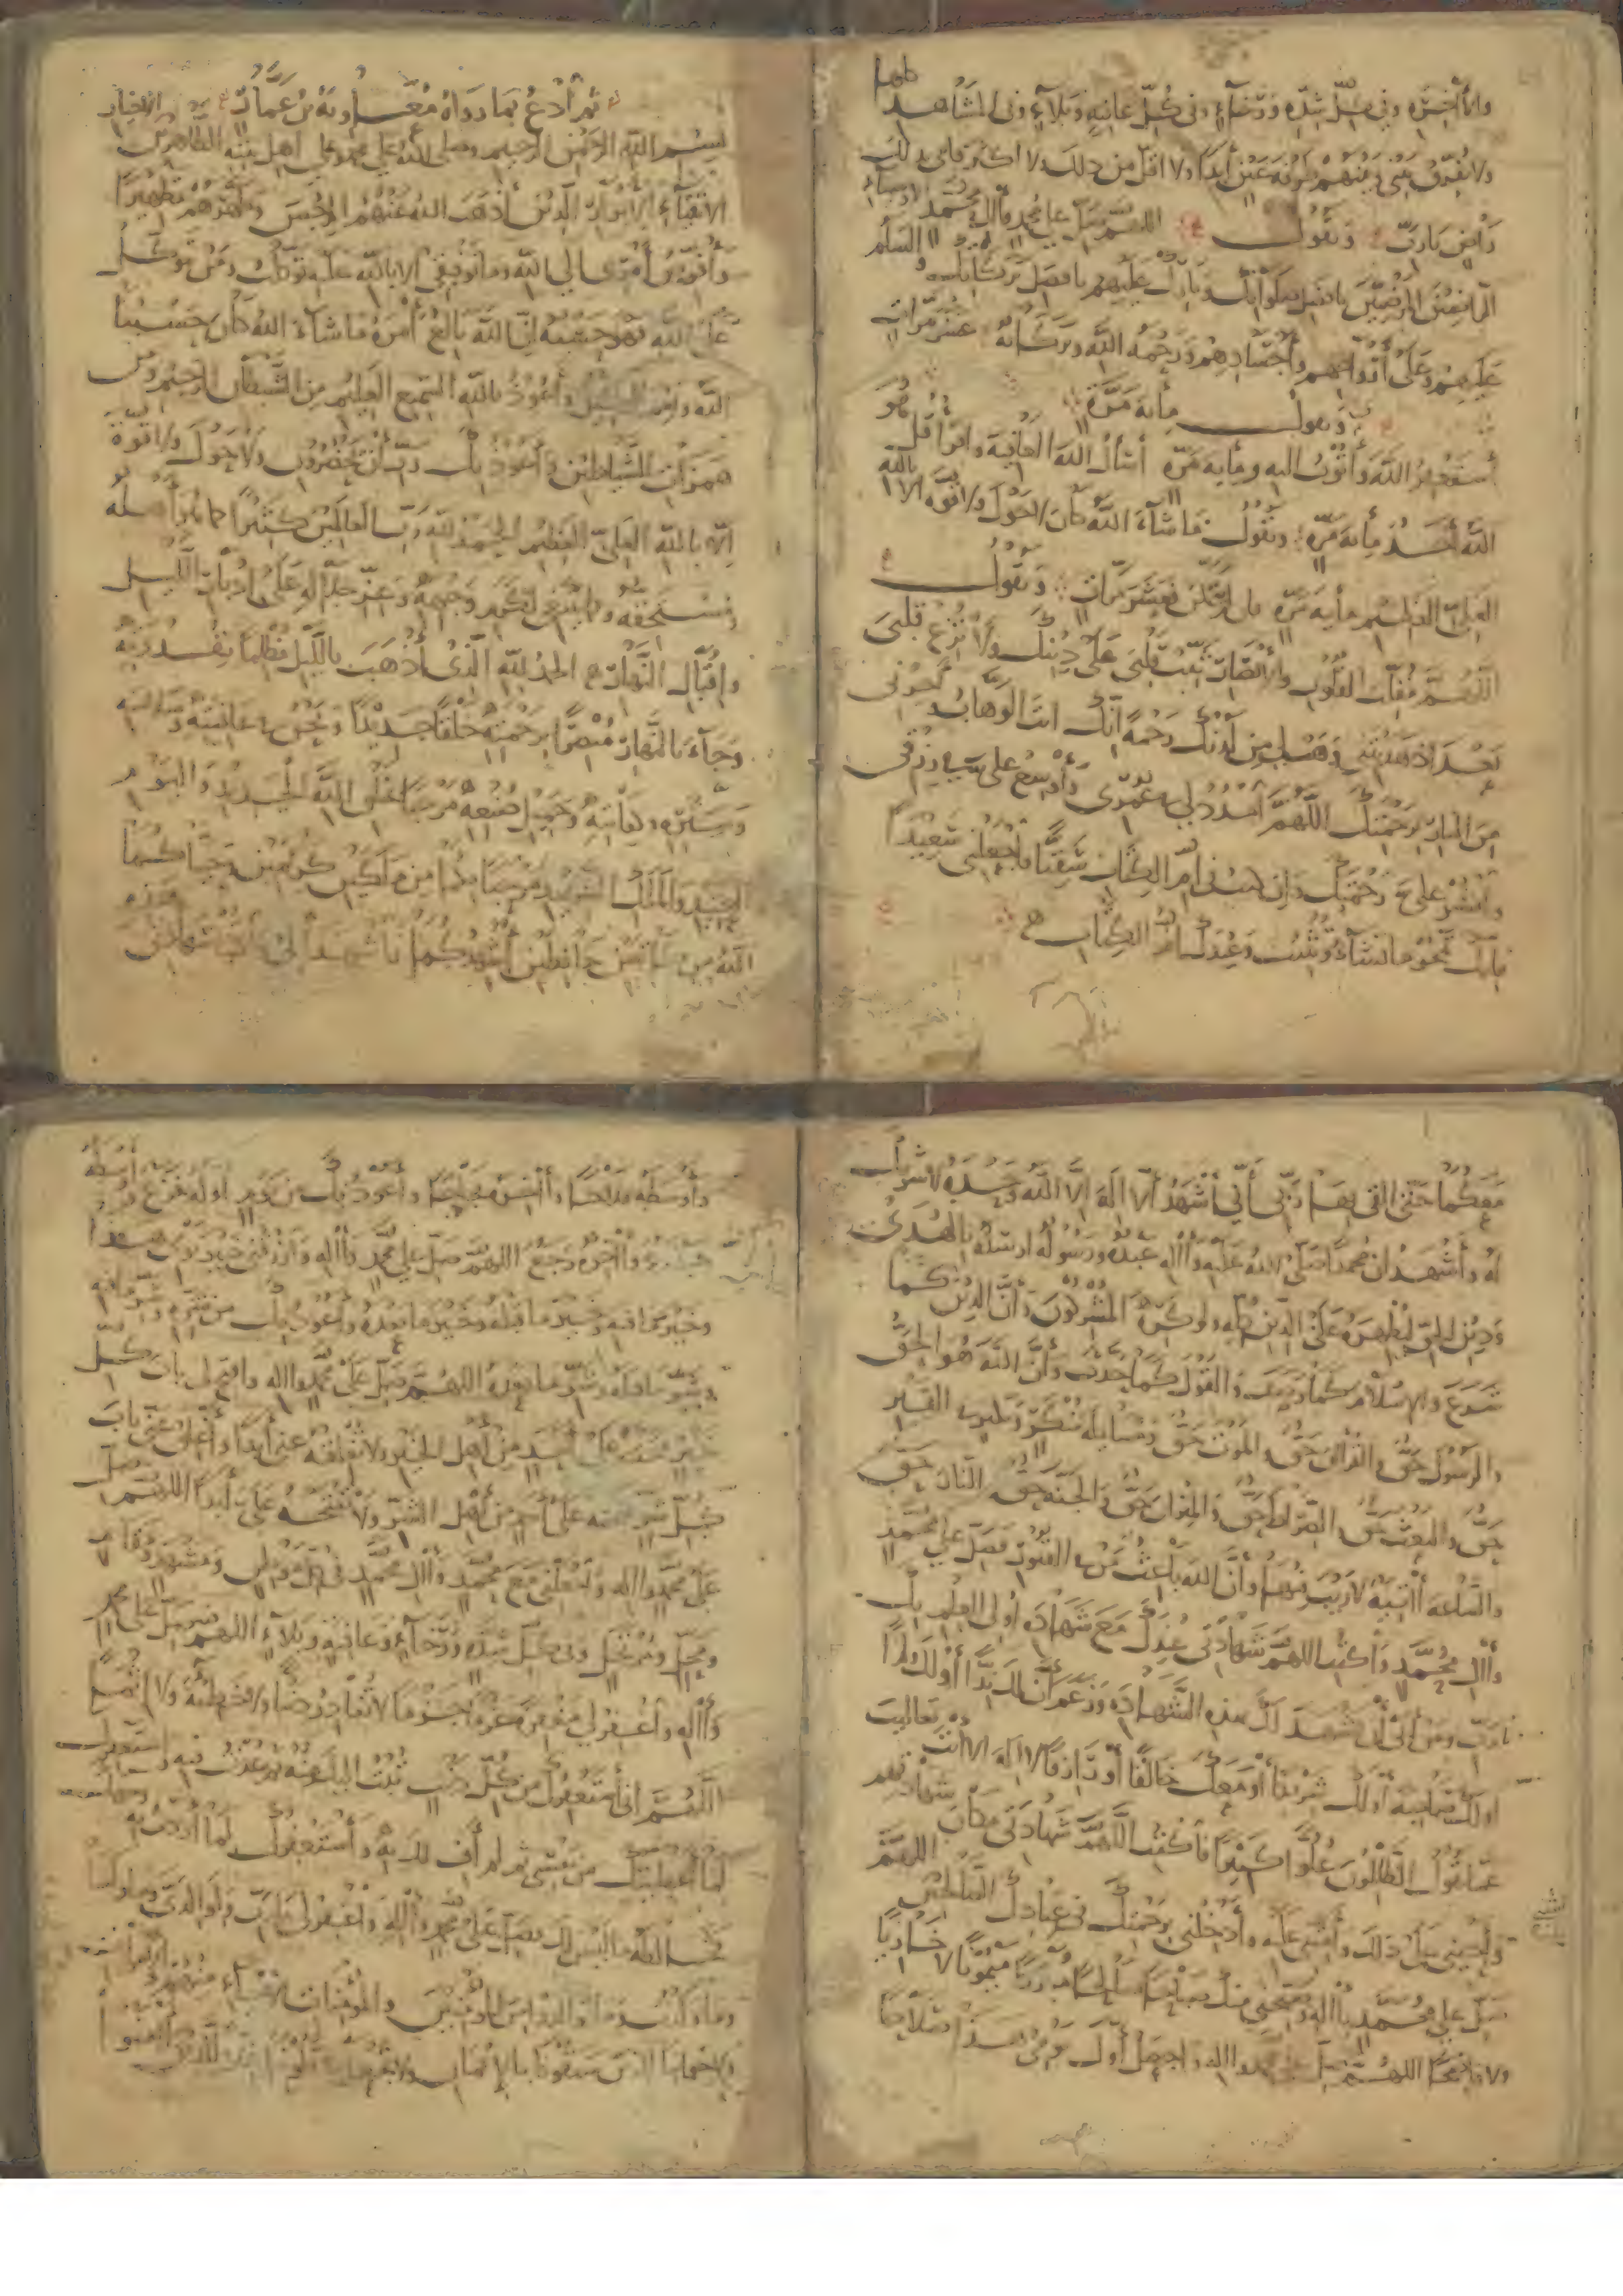 والأخرة وفي كل شدة ورخاء وفي كل عافية وبلاء وفي المشاهد كلها
ولا تفرق بيني وبينهم طرفة عين أبدا ولا اقل من ذلك ولا اكثر فاني بذلك
راض يارب وتقول اللهم صل على محمد وآل محمد الاوصياء
المرضيين بافضل صلواتك وبارك عليهم بافضل بركاتك والسلم
عليهم وعلى أرواحهم وأجسادهم ورحمة الله وبركاته عشر مرات
وتقول مأية مرة
أستغفر الله وأتوب اليه ومأية مرة أسأل الله العافية واقرأ قل هو
الله أحد مأية مرة وتقول ما شاء الله كان لا حول ولا قوة الا بالله
العلي العظيم مأية مرة فعشر مرات وتقول
اللهم مقلب القلوب والأبصار ثبت قلبي على دينك ولا تزغ قلبي
بعد اذ هديتني وهب لي من لدنك رحمة انك انت الوهاب وأجرني
من النار برحمتك اللهم امدد لي في عمري وأوسع علي في رزقي
وانشر علي رحمتك وان كنت في أم الكتاب شقيا فاجعلني سعيدا
فانك تمحو ما تشاء وتثبت وعندك أم الكتاب
ثم أدع بما رواه معاوية بن عمار
بسم الله الرحمن الرحيم وصلى الله على محمد وعلى اهل بيته الطاهرين الاخيار
الاتقياء الأبرار الذين أذهب الله عنهم الرجس وطهرهم تطهيرا
وأفوض أمري الى الله وما توفيقي الا بالله عليه توكلت ومن يتوكل
على الله فهو حسبه ان الله بالغ أمره ما شاء الله كان حسبنا
الله ونعم الوكيل وأعوذ بالله السميع العليم من الشيطان الرجيم ومن
همزات الشياطين وأعوذ بك رب أن يحضرون ولا حول ولا قوة
الا بالله العلي العظيم الحمد لله رب العالمين كثيرا كما هو أهله
ومستحقه وكما ينبغي لكرم وجهه وعز جلاله على إدبار الليل
وإقبال النهار الحمد لله الذي أذهب بالليل مظلما بقدرته
وجاء بالنهار مبصرا برحمته خلقا جديدا ونحن في عافيته وسلامته
وستره وكفايته وجميل صنعه مرحبا بخلق الله الجديد واليوم
العتيد والملك الشهيد مرحبا بكما من ملكين كريمين وحياكما
الله من كاتبين حافظين أشهدكما فاشهدا لي شهادتي هذه
معكما حتى القى بها ربي أني أشهد ألا اله الا الله وحده لا شريك
له وأشهد ان محمدا صلى الله عليه وآله عبده ورسوله ارسله بالهدى
ودين الحق ليظهره على الدين كله ولو كره المشركون وأن الدين كما
شرع والاسلام كما وصف والقول كما حدث وأن الله هو الحق
والرسول حق والقرآن حق والموت حق ومسايلة منكر ونكير في القبر
حق والبعث حق والصراط حق والميزان حق والجنة حق والنار حق
والساعة آتية لا ريب فيها وأن الله باعث من في القبور فصل على محمد
وآل محمد واكتب اللهم شهادتي عندك مع شهادة أولي العلم بك
يا رب ومن أبى أن يشهد لك بهذه الشهادة وزعم أن لك ندا أو لك ولدا
او لك صاحبة أو لك شريكا أو معك خالقا أو رازقا لا اله الا انت تعاليت
عما يقول الظالمون علوا كبيرا فاكتب اللهم شهادتي مكان شهادتهم
وأحيني على ذلك وأمتني عليه وأدخلني برحمتك في عبادك الصالحين اللهم
صل على محمد وآله وصبحني منك صباحا صالحا مباركا ميمونا لا خازيا
ولا فاضحا اللهم صل على محمد وآله واجعل أول يومي هذا صلاحا
وأوسطه فلاحا وآخره نجاحا وأعوذ بك من يوم اوله فزع وأوسطه
جزع وآخره وجع اللهم صل على محمد وآله وارزقني خير يومي هذا
وخير ما فيه وخير ما قبله وخير ما بعده وأعوذ بك من شره وشر ما فيه
وشر ما قبله وشر ما بعده اللهم صل على محمد وآله وافتح لي باب كل
خير فتحته على أحد من أهل الخير ولا تغلقه عني أبدا وأغلق عني باب
كل شر فتحته على أحد من أهل الشر ولا تفتحه علي أبدا اللهم صل
على محمد وآله واجعلني مع محمد وآل محمد في كل موطن ومشهد ومقام
ومحل ومرتحل وفي كل شدة ورخاء وعافية وبلاء اللهم صل على محمد
وآله واغفر لي مغفرة عزما جزما لا تغادر ذنبا ولا خطيئة ولا اثما
اللهم اني أستغفرك من كل ذنب تبت اليك منه ثم عدت فيه واستغفرك
لما أعطيتك من نفسي ثم لم أف لك به وأستغفرك لما أردت به
وجهك فخالطه ما ليس لك فصل على محمد وآله واغفر لي يا رب ولوالدي وما ولدا
وما ولدت وما توالدوا من المؤمنين والمؤمنات الاحياء منهم والاموات
ولاخواننا الذين سبقونا بالإيمان ولا تجعل في قلوبنا غلا للذين آمنوا